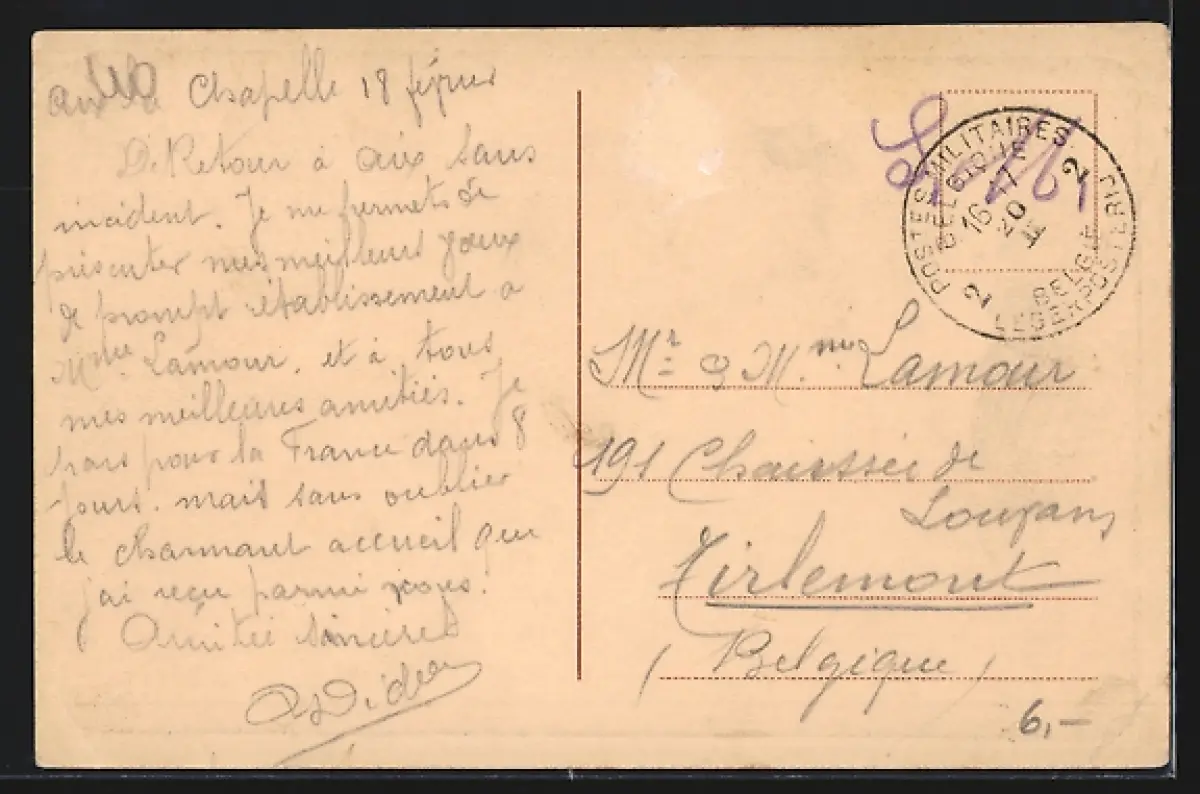 Aix la Chapelle 18 février
De Retour à Aix sans
incident. Je me permets de
présenter mes meilleurs vœux
de prompt établissement à
Mme Lamour. et à tous
mes meilleures amitiés. Je
pour la France dans 8
jours. mais sans oublier
le charmant accueil que
j'ai reçu parmi vous.
Amitié sincères
S.M.
POSTES MILITAIRES
BELGIQUE
2
16
17
20
2
BELGIE
LEGERPOSTERIJ
Mr & Mme Lamour
191 Chaussée de
Louvain
Tirlemont
(Belgique)
6,-